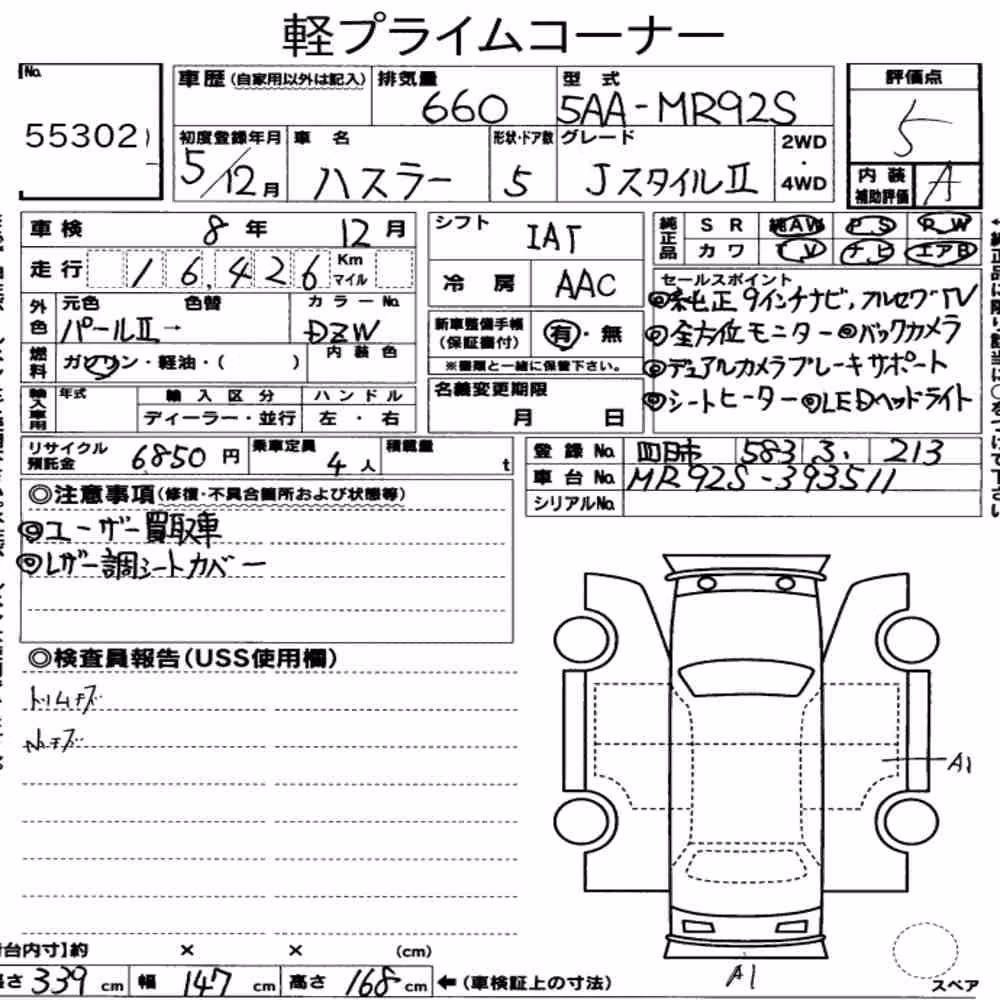 軽プライムコーナー
No.
55302
車歴(自家用以外は記入)
排気量
660
型式
5AA-MR92S
評価点
5
初度登録年月
5/12月
車名
ハスラー
形状・ドア数
5
グレード
JスタイルII
2WD
・
4WD
内装
補助評価
A
車検
8年
12月
シフト
IAT
純正品
SR
純AW
PS
RW
カワ
TV
ナビ
エアB
走行
16,426
Km
マイル
冷房
AAC
セールスポイント
◎純正9インチナビ,フルセグTV
◎全方位モニター ◎バックカメラ
◎デュアルカメラブレーキサポート
◎シートヒーター ◎LEDヘッドライト
外色
元色
色替
カラーNo.
パールII→
DZW
新車整備手帳
(保証書付)
有・無
※書類と一緒に保管下さい。
燃料
ガソリン・軽油・( )
内装色
輸入車用
年式
輸入区分
ハンドル
ディーラー・並行
左・右
名義変更期限
月 日
リサイクル
預託金
6850円
乗車定員
4人
積載量
t
登録No.
四日市 583 3. 213
車台No.
MR92S-393511
シリアルNo.
◎注意事項(修復・不具合箇所および状態等)
◎ユーザー買取車
◎レザー調シートカバー
◎検査員報告(USS使用欄)
トリムキズ
A1
A1
台内寸]約
×
×
(cm)
長さ 339 cm
幅 147 cm
高さ 168 cm
←(車検証上の寸法)
スペア